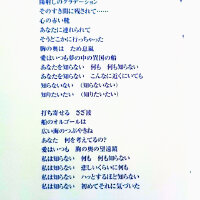 陽射しのグラデーション
そのすき間に残されて……
心の赤い靴
あなたに連れられて
そうどこかに行っちゃった
胸の奥は ため息嵐
愛はいつも夢の中の異国の船
あなたを知らない 何も 何も知らない
あなたを知らない こんなに近くにいても
知らないない (知らないない)
知りたいたい (知りたいたい)
打ち寄せる さざ波
船のオルゴールは
広い海のつぶやきね
あなた 何を考えてるの?
愛はいつも 胸の奥の望遠鏡
私は知らない 何も 何も知らない
私は知らない 悲しいくらいに何も
私は知らない ハッとするほど知らない
私は知らない 初めてそれに気づいた